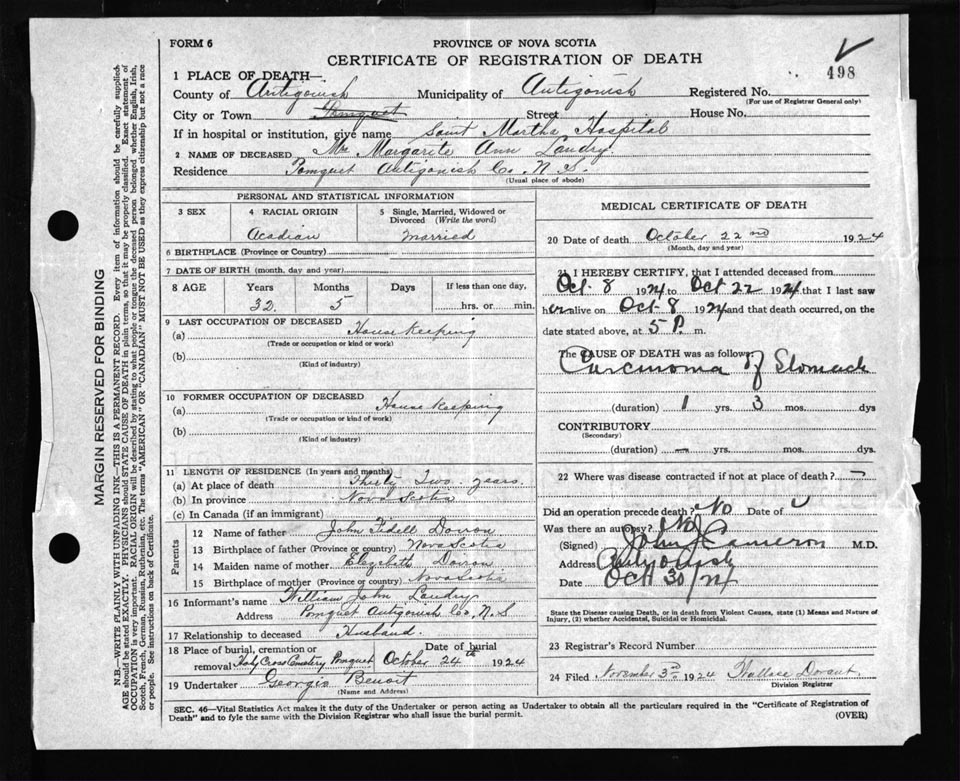 FORM 6
PROVINCE OF NOVA SCOTIA
CERTIFICATE OF REGISTRATION OF DEATH
498
1 PLACE OF DEATH—
County of Antigonish Municipality of Antigonish Registered No.
(For use of Registrar General only)
City or Town Pomquet Street House No.
If in hospital or institution, give name Saint Martha Hospital
2 NAME OF DECEASED Mrs Margarite Ann Landry.
Residence Pomquet Antigonish Co. N. S.
(Usual place of abode)
PERSONAL AND STATISTICAL INFORMATION
3 SEX
4 RACIAL ORIGIN
Acadian
5 Single, Married, Widowed or Divorced (Write the word)
Married
6 BIRTHPLACE (Province or Country)
7 DATE OF BIRTH (month, day and year)
8 AGE Years Months Days If less than one day,
32. 5 hrs. or min.
9 LAST OCCUPATION OF DECEASED
(a) House Keeping
(Trade or occupation or kind or work)
(b)
(Kind of industry)
10 FORMER OCCUPATION OF DECEASED
(a) House Keeping
(Trade or occupation or kind of work)
(b)
(Kind of industry)
11 LENGTH OF RESIDENCE (In years and months)
(a) At place of death Thirty Two years.
(b) In province Nova Scotia
(c) In Canada (if an immigrant)
Parents
12 Name of father John Fidell
13 Birthplace of father (Province or country) Nova Scotia
14 Maiden name of mother Elizabeth
15 Birthplace of mother (Province or country) Nova Scotia
16 Informant's name William John Landry
Address Pomquet Antigonish Co, N. S
17 Relationship to deceased Husband.
18 Place of burial, cremation or removal Holy Cross Cemetery Pomquet Date of burial October 24th 1924
19 Undertaker Benoit
(Name and Address)
MEDICAL CERTIFICATE OF DEATH
20 Date of death October 22nd 1924
(Month, day and year)
21 I HEREBY CERTIFY, that I attended deceased from
Oct 8 1924 to Oct 22 1924 that I last saw
her alive on Oct 8 1924 and that death occurred, on the
date stated above, at 5 P. m.
The CAUSE OF DEATH was as follows:
Carcinoma of Stomach
(duration) 1 yrs. 3 mos. dys
CONTRIBUTORY
(Secondary)
(duration) yrs. mos. dys.
22 Where was disease contracted if not at place of death?
Did an operation precede death? No Date of
Was there an autopsy? No
(Signed) John J Cameron M.D.
Address Antigonish
Date Oct 30/24
State the Disease causing Death, or in death from Violent Causes, state (1) Means and Nature of Injury, (2) whether Accidental, Suicidal or Homicidal.
23 Registrar's Record Number
24 Filed November 3rd 1924 Wallace
Division Registrar
SEC. 46—Vital Statistics Act makes it the duty of the Undertaker or person acting as Undertaker to obtain all the particulars required in the "Certificate of Registration of
Death" and to fyle the same with the Division Registrar who shall issue the burial permit. (OVER)
MARGIN RESERVED FOR BINDING
N.B.—WRITE PLAINLY WITH UNFADING INK—THIS IS A PERMANENT RECORD. Every item of information should be carefully supplied.
AGE should be stated EXACTLY. PHYSICIANS should STATE CAUSE OF DEATH in plain terms, so that it may be properly classified. Exact statement of
OCCUPATION is very important. RACIAL ORIGIN will be described by stating to what people or tongue the deceased person belonged whether English, Irish,
Scotch, French, German, Russian, Ruthenian, etc. The terms "AMERICAN" OR "CANADIAN" MUST NOT BE USED as they express citizenship but not a race
or people. See instructions on back of Certificate.